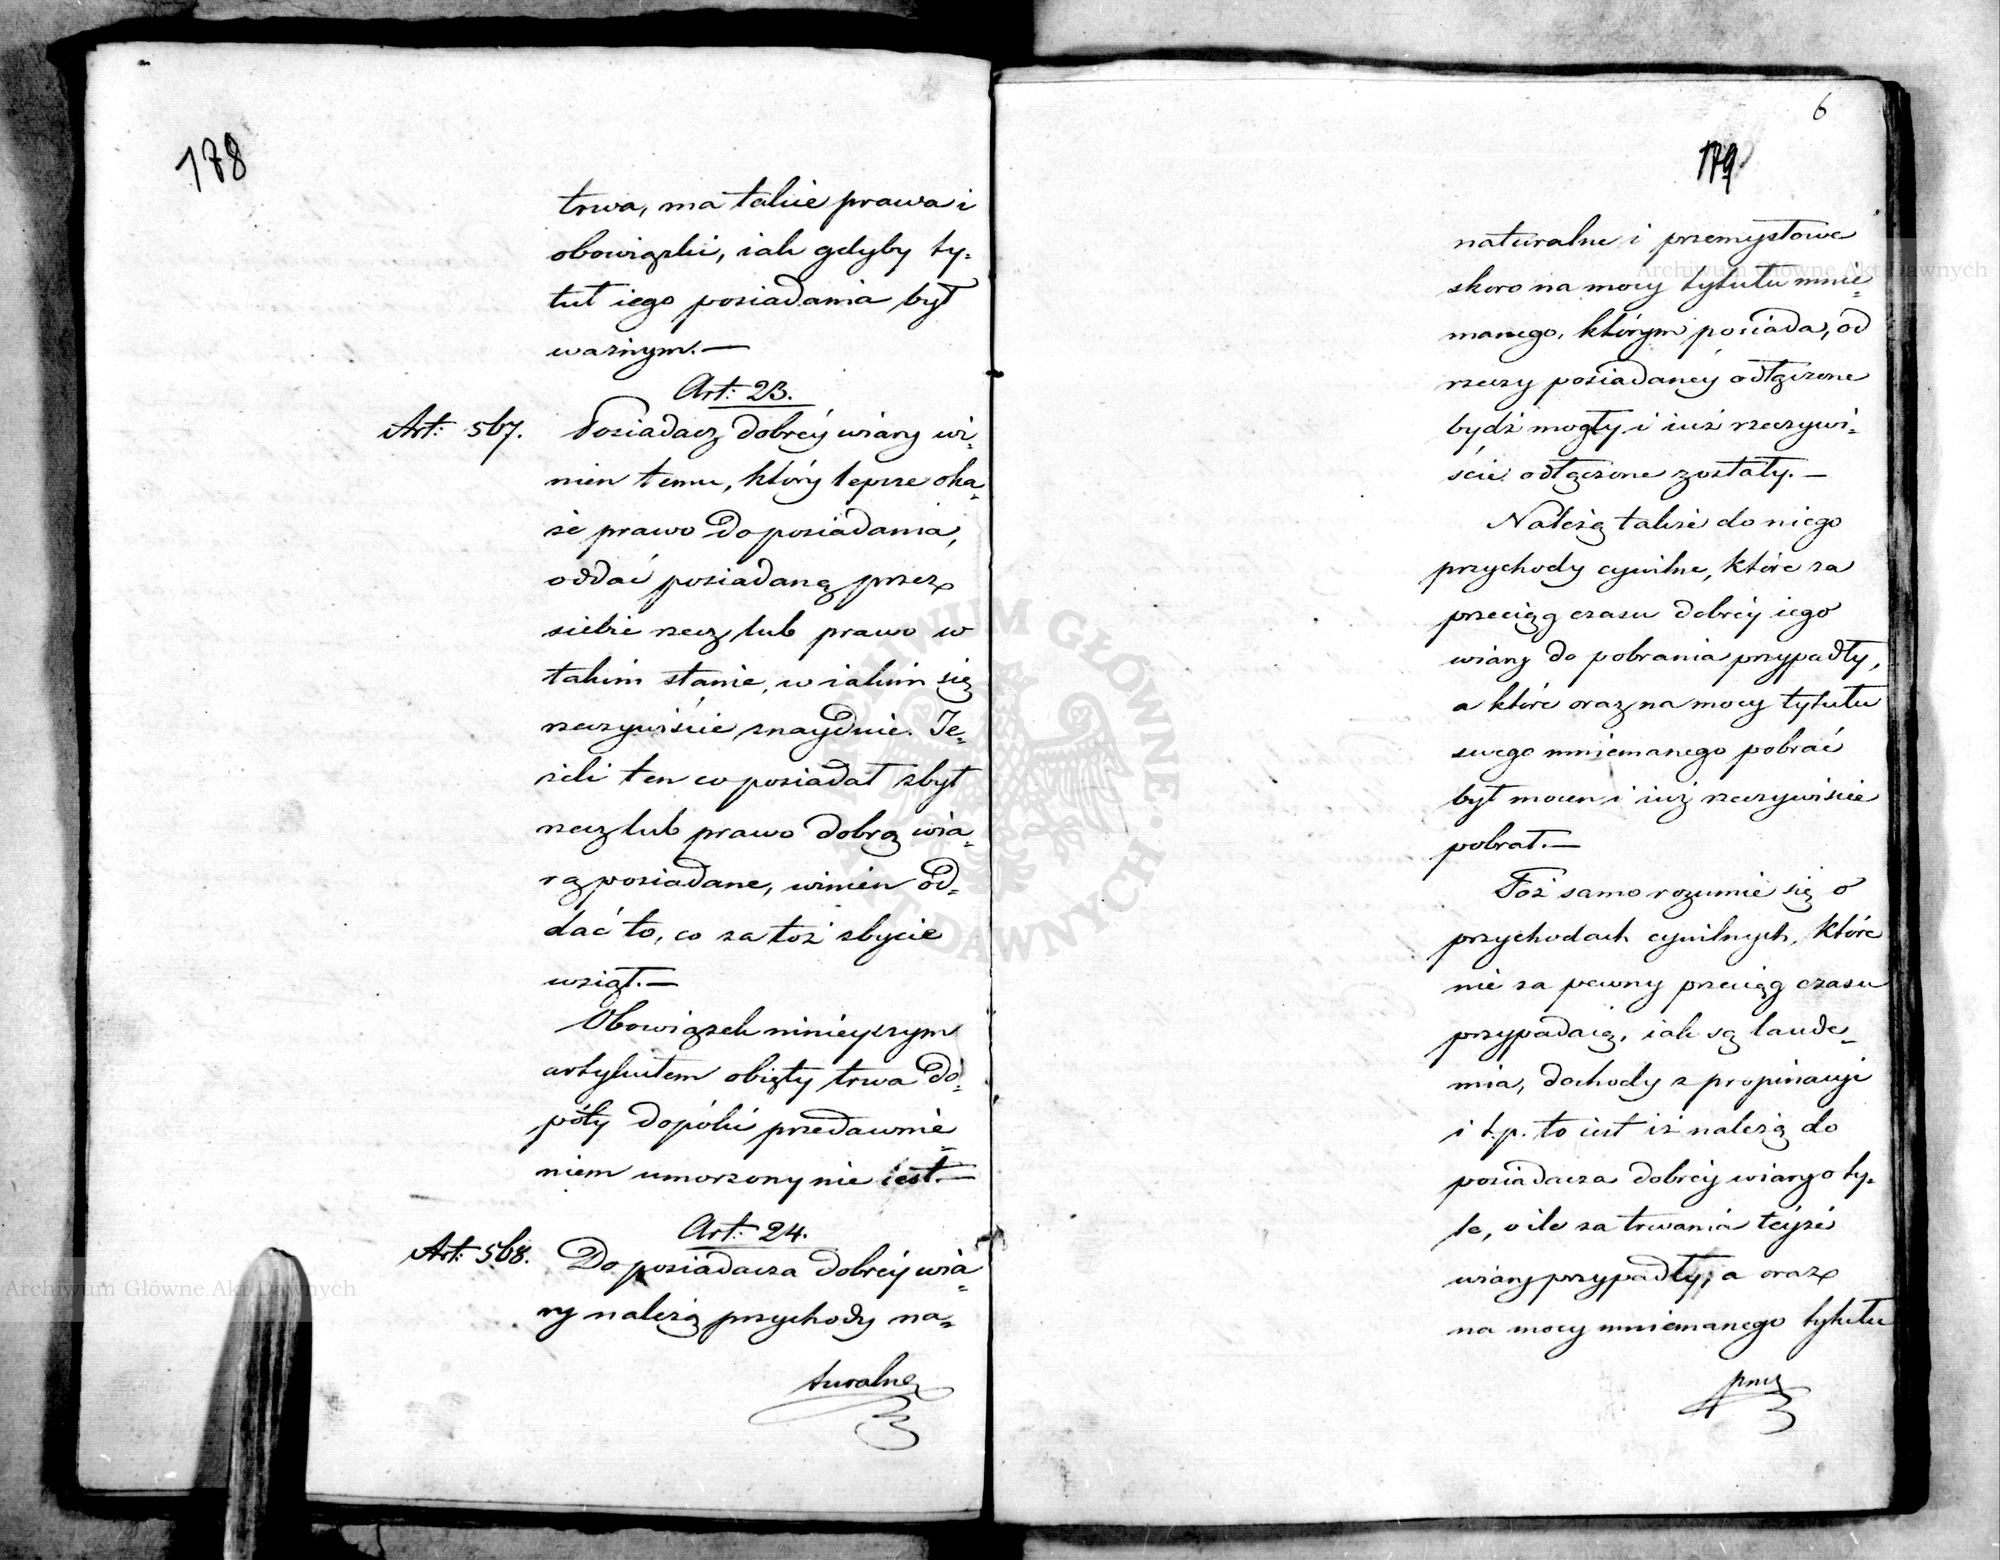 178
trwa, ma takie prawa i
obowiązki, iak gdyby ty-
tuł iego posiadania był
ważnym.—
Art: 23.
Art: 567.
Posiadacz dobréy wiary wi-
nien temu, który lepsze oka-
że prawo do posiadania,
oddać posiadaną przez
siebie rzecz lub prawo w
takim stanie, w iakim się
rzeczywiście znayduie. Je-
żeli ten co posiadał zbył
rzecz lub prawo dobrą wia-
rą posiadane, winien od-
dać to, co za toż zbycie
wziął.—
Obowiązek ninieyszym
artykułem obięty trwa do-
póty dopóki przedawnie-
niem umorzony nie iest.—
Art: 24.
Art: 568.
Do posiadacza dobréy wia-
ry należą przychody na-
turalne
6
179
naturalne i przemysłowe
skoro na mocy tytułu mnie-
manego, którym posiada, od
rzeczy posiadanéy odłączone
bydź mogły i iuż rzeczywi-
ście odłączone zostały.—
Należą także do niego
przychody cywilne, które za
przeciąg czasu dobréy iego
wiary do pobrania przypadły,
a które oraz na mocy tytułu
swego mniemanego pobrać
był mocen i iuż rzeczywiście
pobrał.—
Toż samo rozumie się o
przychodach cywilnych, które
nie za pewny przeciąg czasu
przypadaią, iak są laude-
mia, dochody z propinacyi
i t.p. to iest iż należą do
posiadacza dobréy wiary o ty-
le, o ile za trwania téyże
wiary przypadły, a oraz
na mocy mniemanego tytułu
Archiwum Główne Akt Dawnych
Archiwum Główne Akt Dawnych
ARCHIWUM GŁÓWNE AKT DAWNYCH